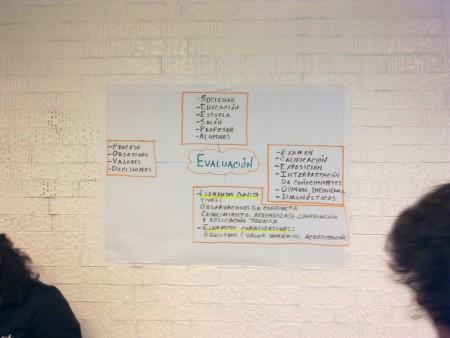 -SOCIEDAD
-EDUCACIÓN
-ESCUELA
-SALÓN
-PROFESOR
-ALUMNOS
-PROCESO
-OBJETIVOS
-VALORES
-DECISIONES
EVALUACIÓN
-EXAMEN
-CALIFICACIÓN
-EXPOSICION
-INTERPRETACIÓN
DE CONOCIMIENTOS
-OPINION INDIVIDUAL
-DIAGNÓSTICOS
-ELEMENTOS CUALITA
TIVOS:
OBSERVACIONES DE CONDUCTA
CONOCIMIENTO, APRENDIZAJE, COMPRENSIÓN
Y APLICACIÓN TEORICA
-ELEMENTOS CUANTITATIVOS:
REGISTROS (VALOR NUMÉRICO,